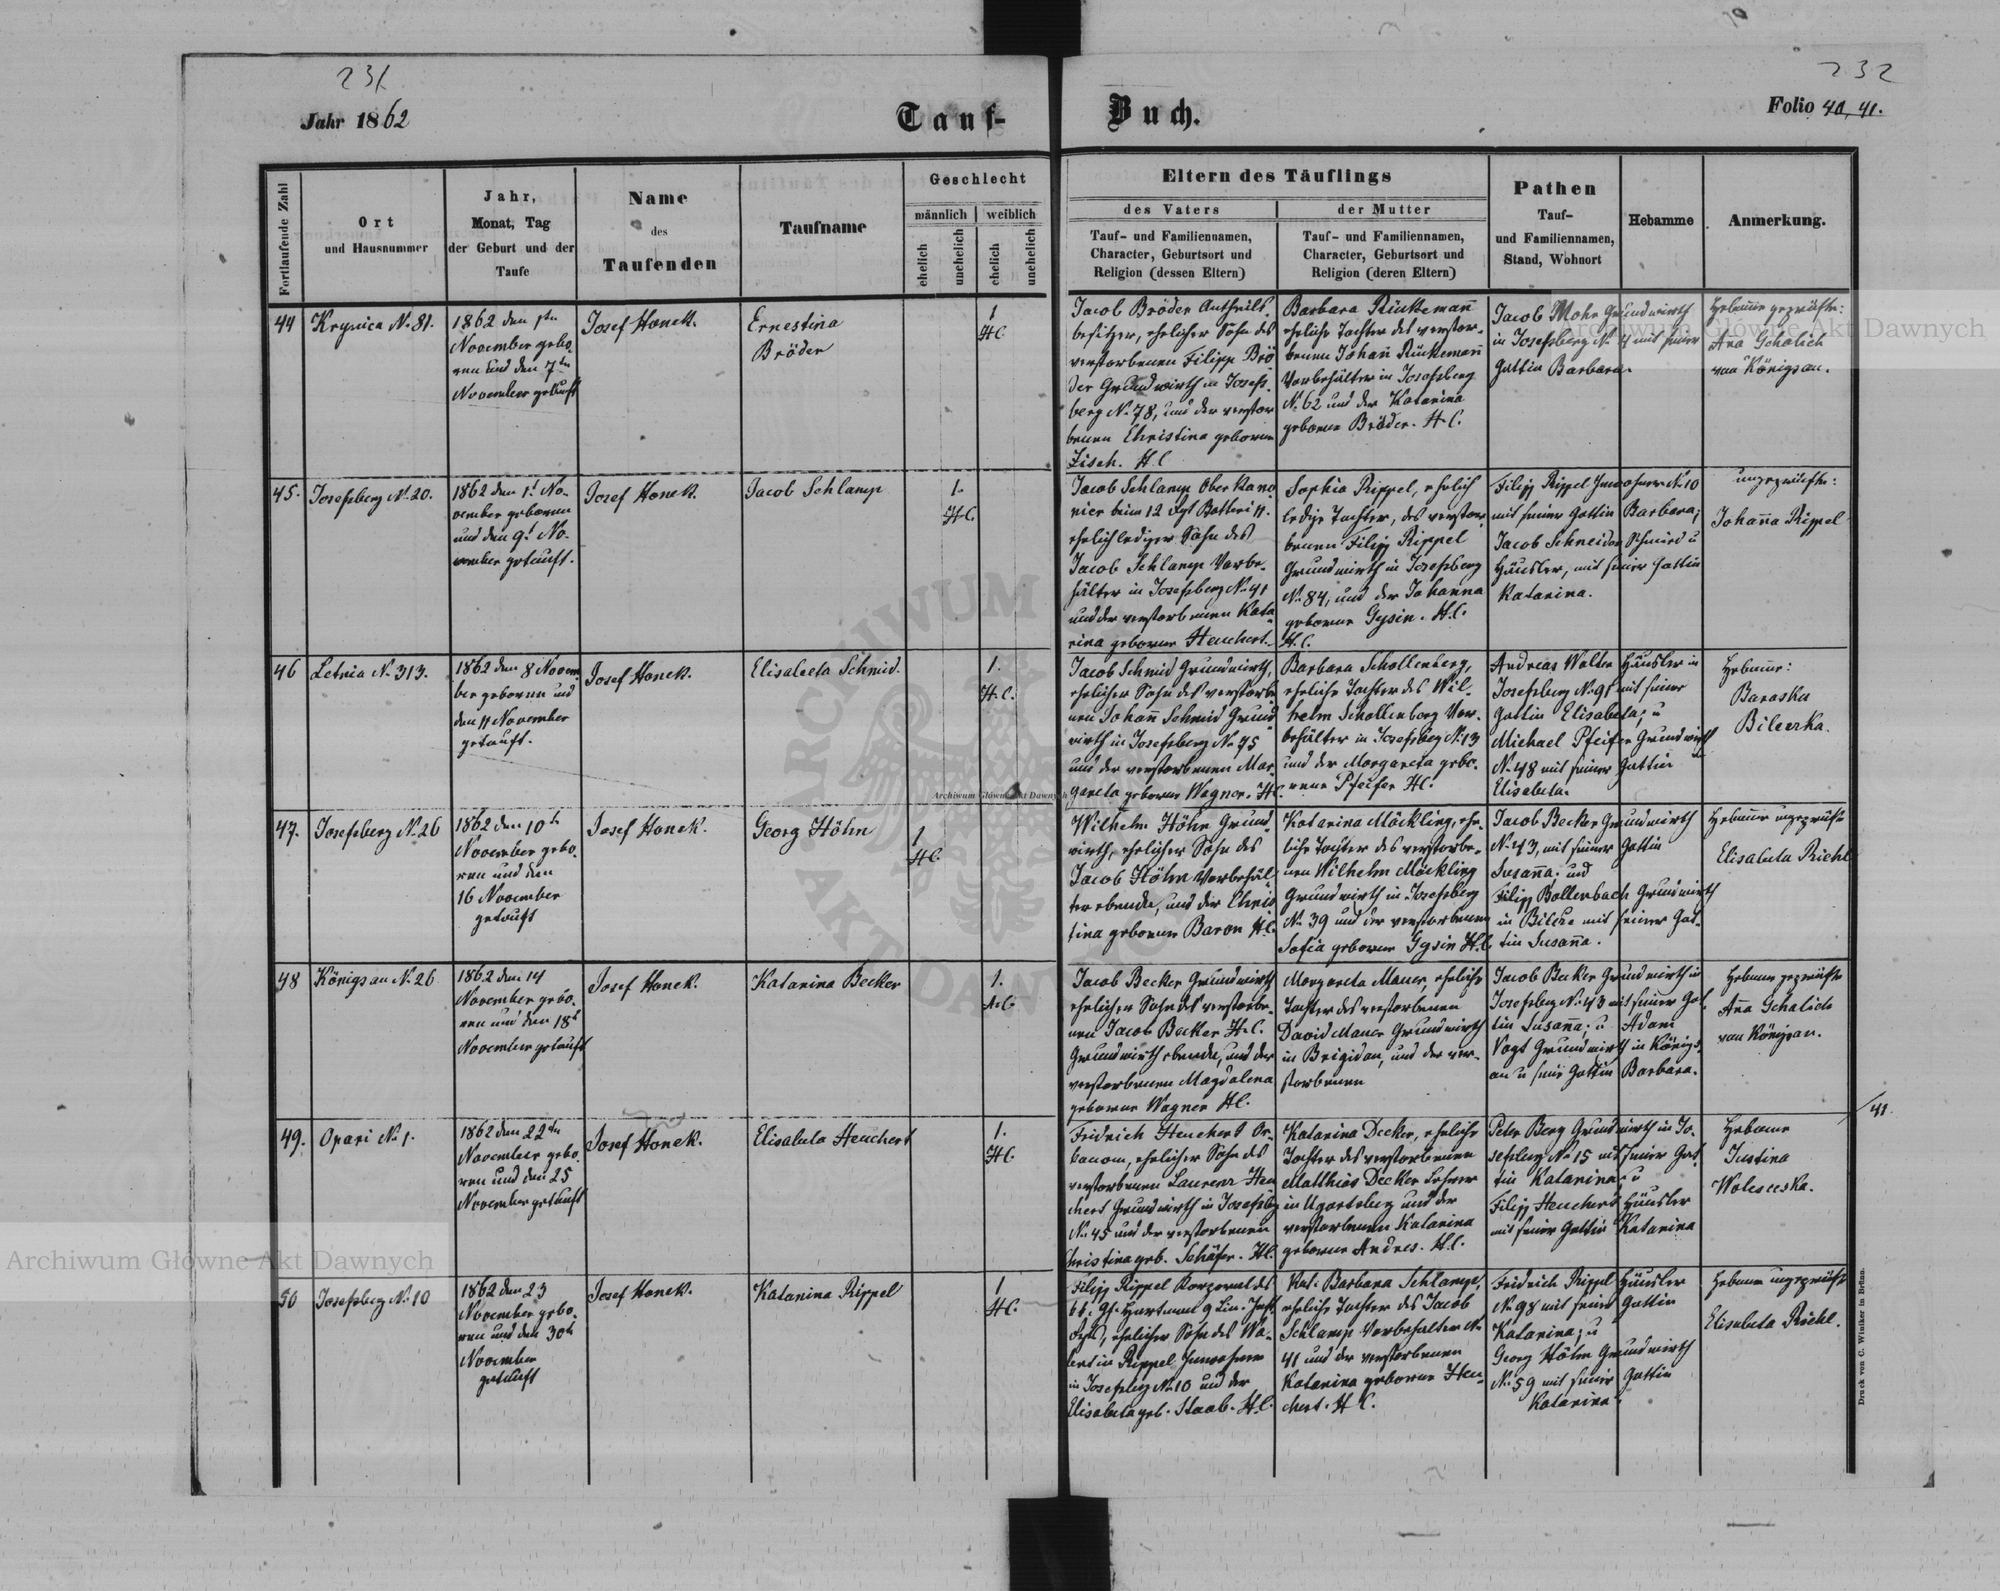 231
232
Jahr 1862
Tauf-
Buch.
Folio 40, 41.
Fortlaufende Zahl
Ort
und Hausnummer
Jahr,
Monat, Tag
der Geburt und der
Taufe
Name
des
Taufenden
Taufname
Geschlecht
männlich
weiblich
ehelich
unehelich
ehelich
unehelich
Eltern des Täuflings
des Vaters
Tauf- und Familiennamen,
Character, Geburtsort und
Religion (dessen Eltern)
der Mutter
Tauf- und Familiennamen,
Character, Geburtsort und
Religion (deren Eltern)
Pathen
Tauf-
und Familiennamen,
Stand, Wohnort
Hebamme
Anmerkung.
44
Krynica No 81.
1862 den 1ten
November gebo-
ren und den 7ten
November getauft
Josef Honek.
Ernestina
Bröder
1
H.C.
Jacob Bröder Antheils-
besitzer, ehelicher Sohn des
verstorbenen Filipp Brö
der Grundwirth in Josefs-
berg No 78, und der verstor
benen Christina geborene
Zisch. H.C
Barbara Rückemann
eheliche Tochter des verstor-
benen Johann Rückemann
Vorbehälter in Josefsberg
No 62 und der Katarina
geborene Bröder. H.C.
Jacob Mohr Grundwirth
in Josefsberg No 4 mit seiner
Gattin Barbara.
Hebamme geprüfte:
Ana Schalich
von Königsau.
45.
Josefsberg No 20.
1862 den 1t No-
vember geboren
und den 9t No-
vember getauft.
Josef Honek.
Jacob Schlamp
1.
H.C.
Jacob Schlamp Oberkano-
nier beim 12
ehelich lediger Sohn des
Jacob Schlamp Vorbe-
hälter in Josefsberg No 41
und der verstorbenen Kata-
rina geborne Heuchert.
Sophia Rippel, ehelich
ledige Tochter, des verstor-
benen Filipp Rippel
Grundwirth in Josefsberg
No 84, und der Johanna
geborne Gysin. H.C.
H.C.
Filipp Rippel Inwohner No 10
mit seiner Gattin Barbara;
Jacob Schneider Schmied u
Häusler, mit seiner Gattin
Katarina.
ungeprüfte:
Johanna Rippel
46
Letnia No 313.
1862 den 8 Novem-
ber geboren und
den 11 November
getauft.
Josef Honek.
Elisabeta Schmid.
1.
H.C.
Jacob Schmid Grundwirth,
ehelicher Sohn des verstorbe
nen Johann Schmid Grund
wirth in Josefsberg No 75
und der verstorbenen Mar-
gareta geborne Wagner. H.C.
Barbara Schollenberg,
eheliche Tochter des Wil-
helm Schollenberg Vor-
behälter in Josefsberg No 13
und der Margareta gebo-
rene Pfeifer H.C.
Andreas Walter Häusler in
Josefsberg No 91 mit seiner
Gattin Elisabeta; u
Michael Pfeifer Grundwirth
No 48 mit seiner Gattin
Elisabeta.
Hebamme:
Baraska
Bilecka.
47.
Josefsberg No 26
1862 den 10ten
November gebo-
ren und den
16 November
getauft
Josef Honek.
Georg Höhn
1
H.C.
Wilhelm Höhn Grund-
wirth, ehelicher Sohn des
Jacob Höhn Vorbehäl-
ter ebenda, und der Chris
tina geborene Baron H.C.
Katarina Möckling, ehe-
liche Tochter des verstorbe-
nen Wilhelm Möckling
Grundwirth in Josefsberg
No 39 und der verstorbenen
Sofia geborene Gysin H.C.
Jacob Becker Grundwirth
No 43, mit seiner Gattin
Susanna; und
Filipp Bollenbach Grundwirth
in Bilcze mit seiner Gat-
tin Susanna.
Hebamme ungeprüfte
Elisabeta Riehl
48
Königsau No 26
1862 den 14
November gebo-
ren und den 18t
November getauft
Josef Honek.
Katarina Becker
1.
H.C.
Jacob Becker Grundwirth
ehelicher Sohn des verstorbe-
nen Jacob Becker H.C.
Grundwirth ebenda, und der
verstorbenen Magdalena
geborne Wagner H.C.
Margareta Mauer, eheliche
Tochter des verstorbenen
David Mauer Grundwirth
in Brigidau, und der ver-
storbenen
Jacob Becker Grundwirth in
Josefsberg No 43 mit seiner Gat-
tin Susanna; u Adam
Vogt Grundwirth in Königs-
au u seine Gattin Barbara.
Hebamme geprüfte
Ana Schalich
von Königsau.
41.
49.
Opari No 1.
1862 den 22ten
November gebo-
ren und den 25
November getauft
Josef Honek.
Elisabeta Heuchert
1.
H.C.
Fridrich Heuchert Oe-
konom, ehelicher Sohn des
verstorbenen Laurenz Heu
chert Grundwirth in Josefsbg
No 45 und der verstorbenen
Christina geb. Schäfer. H.C.
Katarina Decker, eheliche
Tochter des verstorbenen
Matthias Decker Lehrer
in Ugartsberg und der
verstorbenen Katarina
geborne Andres. H.C.
Peter Berg Grundwirth in Jo-
sefsberg No 15 mit seiner Gat-
tin Katarina; u
Filipp Heuchert Häusler
mit seiner Gattin Katarina
Hebame
Justina
50
Josefsberg No 10
1862 den 23
November gebo-
ren und den 30ten
November
getauft
Josef Honek.
Katarina Rippel
1
H.C.
Filipp Rippel Korporal des
Hartmann 9 Lin. Inft.
ehelicher Sohn des Va-
lentin Rippel Inwohner
in Josefsberg No 10 und der
Elisabeta geb. Staab. H.C.
Kat. Barbara Schlamp,
eheliche Tochter des Jacob
Schlamp Vorbehälter No
41 und der verstorbenen
Katarina geborne Heu-
chert. H C.
Fridrich Rippel Häusler
No 98 mit seiner Gattin
Katarina; u
Georg Höhn Grundwirth
No 59 mit seiner Gattin
Katarina.
Hebamme ungeprüfte
Elisabeta Riehl.
Druck von C. Winiker in Brünn.
Archiwum Główne Akt Dawnych
Archiwum Główne Akt Dawnych
Archiwum Główne Akt Dawnych
ARCHIWUM
AKT DAWN